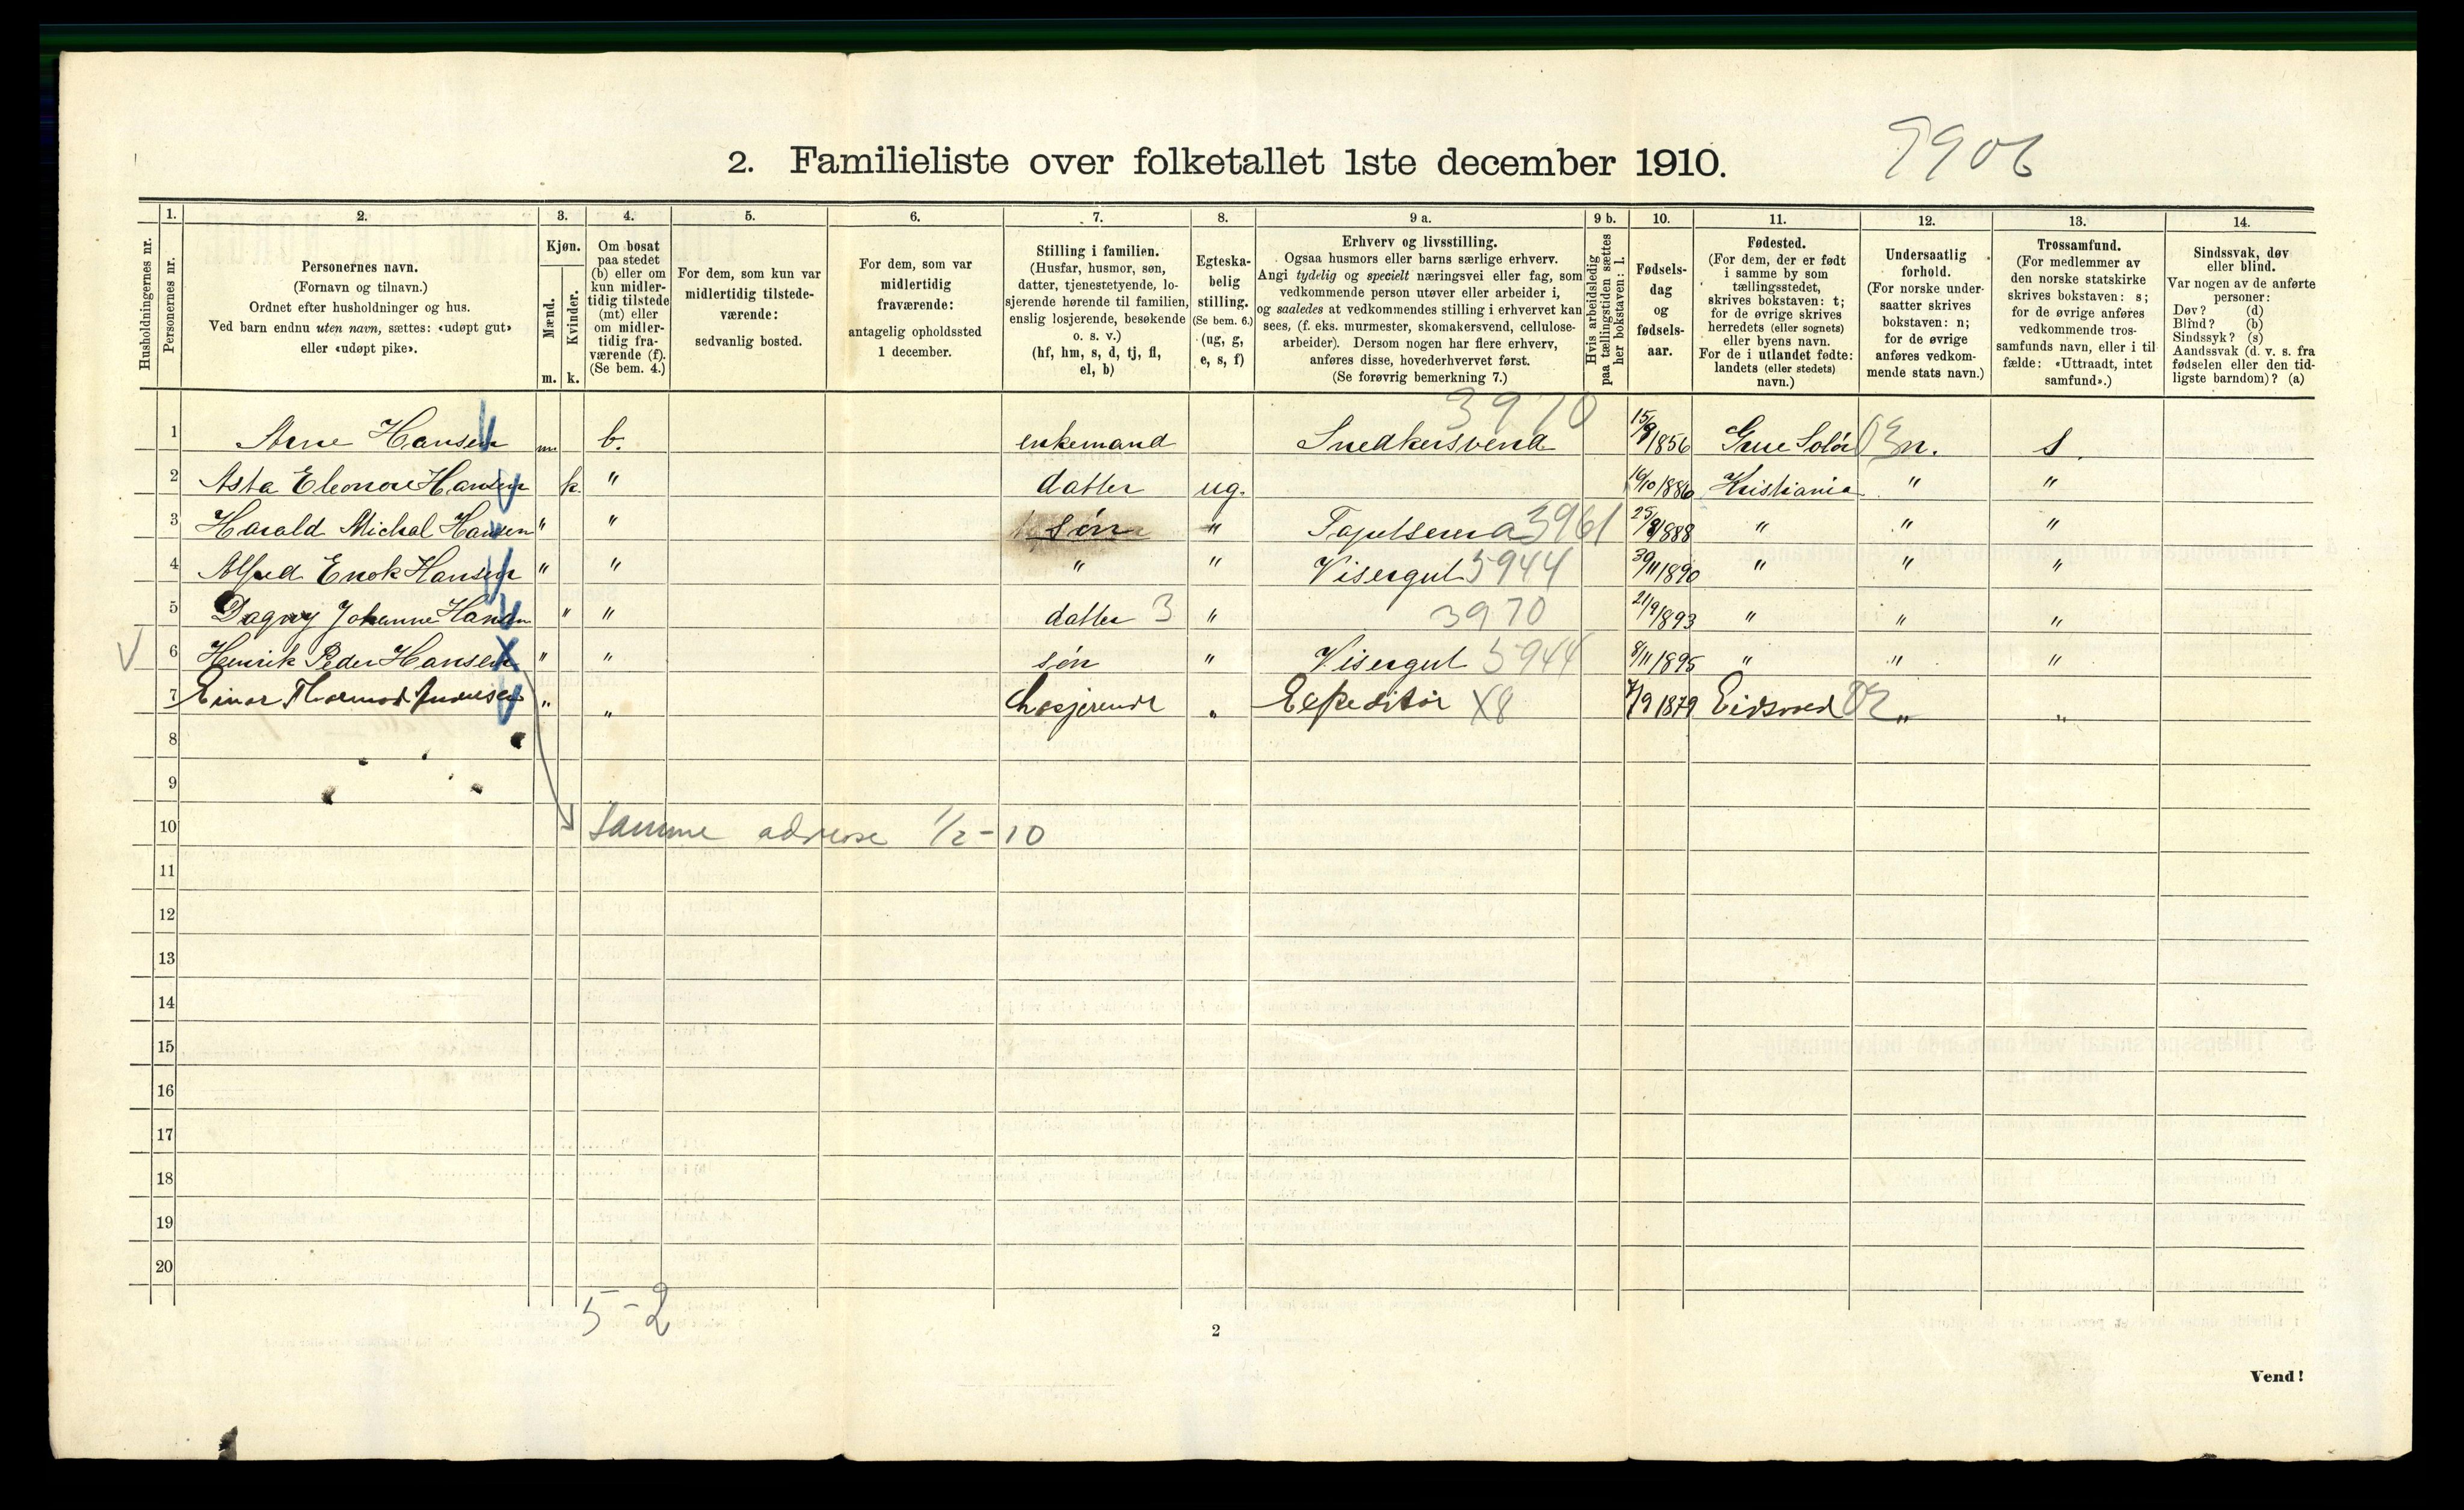 2. Familieliste over folketallet 1ste december 1910.
Husholdningernes nr.
1. Personernes nr.
2. Personernes navn. (Fornavn og tilnavn.) Ordnet efter husholdninger og hus. Ved barn endnu uten navn, sættes: «udøpt gut» eller «udøpt pike».
3. Kjøn. Mænd. m. Kvinder. k.
4. Om bosat paa stedet (b) eller om kun midler- tidig tilstede (mt) eller om midler- tidig fra- værende (f). (Se bem. 4.)
5. For dem, som kun var midlertidig tilstede- værende: sedvanlig bosted.
6. For dem, som var midlertidig fraværende: antagelig opholdssted 1 december.
7. Stilling i familien. (Husfar, husmor, søn, datter, tjenestetyende, lo- sjerende hørende til familien, enslig losjerende, besøkende o. s. v.) (hf, hm, s, d, tj, fl, el, b)
8. Egteska- belig stilling. (Se bem. 6.) (ug, g, e, s, f)
9 a. Erhverv og livsstilling. Ogsaa husmors eller barns særlige erhverv. Angi tydelig og specielt næringsvei eller fag, som vedkommende person utøver eller arbeider i, og saaledes at vedkommendes stilling i erhvervet kan sees, (f. eks. murmester, skomakersvend, cellulose- arbeider). Dersom nogen har flere erhverv, anføres disse, hovederhvervet først. (Se forøvrig bemerkning 7.)
9 b. Hvis arbeidsledig paa tællingstiden sættes her bokstaven: l.
10. Fødsels- dag og fødsels- aar.
11. Fødested. (For dem, der er født i samme by som tællingsstedet, skrives bokstaven: t; for de øvrige skrives herredets (eller sognets) eller byens navn. For de i utlandet fødte: landets (eller stedets) navn.)
12. Undersaatlig forhold. (For norske under- saatter skrives bokstaven: n; for de øvrige anføres vedkom- mende stats navn.)
13. Trossamfund. (For medlemmer av den norske statskirke skrives bokstaven: s; for de øvrige anføres vedkommende tros- samfunds navn, eller i til fælde: «Uttraadt, intet samfund».)
14. Sindssvak, døv eller blind. Var nogen av de anførte personer: Døv? (d) Blind? (b) Sindssyk? (s) Aandssvak (d. v. s. fra fødselen eller den tid- ligste barndom)? (a)
3970
1 Arne Hansen m. b. enkemand Snedkersvend 15/9 1856 Grue Solør 03 n. s.
2 Asta Eleonore Hansen k. " datter ug. 16/10 1886 Kristiania " "
3 Harald Michal Hansen " " søn " 3961 1888 " " "
4 Alfred Enok Hansen " " " " Visergut 5944 30/11 1890 " " "
5 Dagny Johanne Hansen " " datter 3 " 3970 21/9 1893 " " "
V 6 Henrik Peder Hansen X " " søn " Visergut 5944 8/11 1895 " " "
7 Einar Thormod " " Losjerende " Expeditør X8 7/9 1879 Eidsvold 02 " "
8
9
10 Samme adresse 1/2-10
11
12
13
14
15
16
17
18
19
20
5-2
2
Vend!